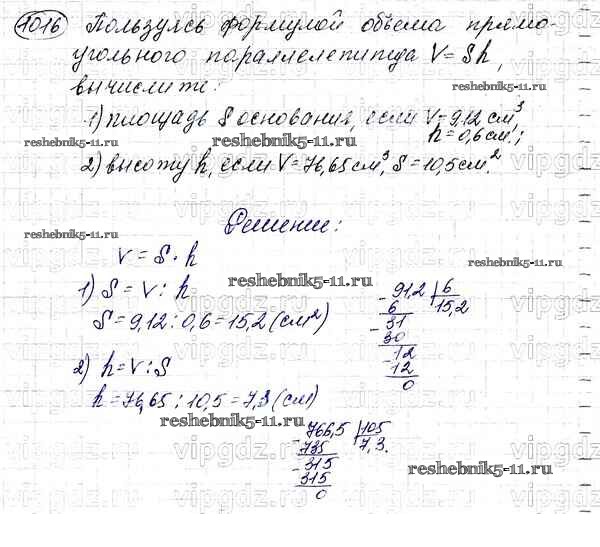 1016 Пользуясь формулой объема прямо-
угольного параллелепипеда V=Sh,
вычислите:
1) площадь S основания, если V=9,12 см³,
h=0,6 см;
reshebnik5-11.ru
2) высоту h, если V=76,65 см³, S=10,5 см².
reshebnik5-11.ru
Решение:
reshebnik5-11.ru
V = S · h
1) S = V : h
reshebnik5-11.ru
S = 9,12 : 0,6 = 15,2 (см²)
91,2 | 6
- 6 15,2
- 31
30
- 12
12
0
2) h = V : S
h = 76,65 : 10,5 = 7,3 (см)
reshebnik5-11.ru
766,5 | 105
- 735 7,3.
- 315
315
0
reshebnik5-11.ru
vipgdz